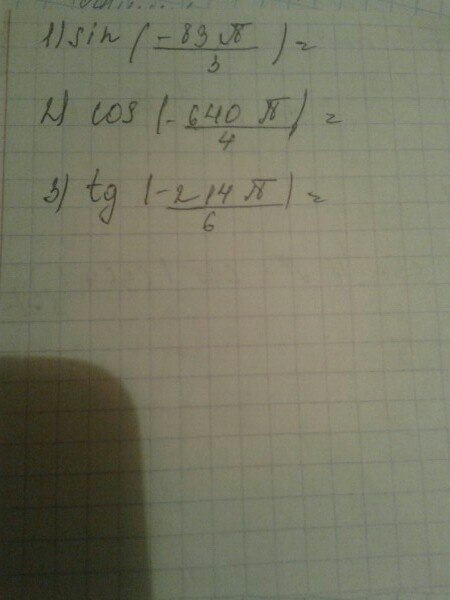 1) sin (-83π/3) =
2) cos (-640π/4) =
3) tg (-214π/6) =